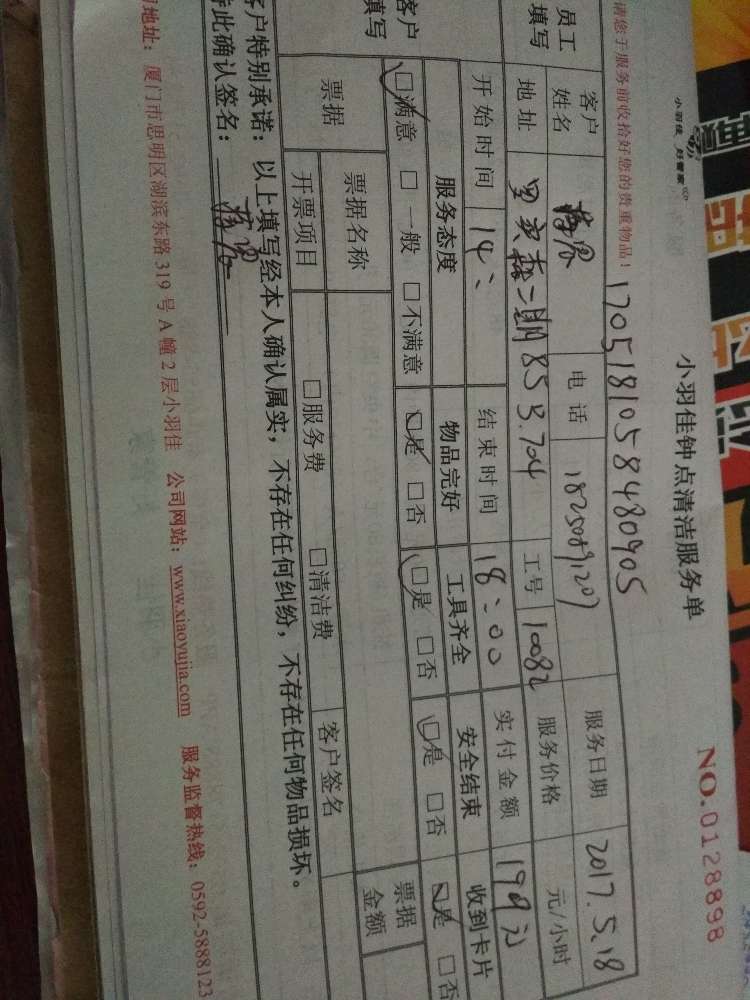 小羽佳 好管家
小羽佳钟点清洁服务单
NO.0128898
请您于服务前收拾好您的贵重物品！ 170518105848090S
员工填写 客户姓名 电话 服务日期 2017.5.18
地址 853.704 工号 10082 服务价格 元/小时
开始时间 14: 结束时间 18:00 实付金额 199元
客户填写 服务态度 物品完好 工具齐全 安全结束 收到卡片
☑满意 □一般 □不满意 ☑是 □否 ☑是 □否 ☑是 □否 ☑是 □否
票据 票据名称 票据金额
开票项目 □服务费 □清洁费 客户签名
客户特别承诺：以上填写经本人确认属实，不存在任何纠纷，不存在任何物品损坏。
特此确认签名：
司地址：厦门市思明区湖滨东路319号A幢2层小羽佳 公司网站：www.xiaoyujia.com 服务监督热线：0592-5888123